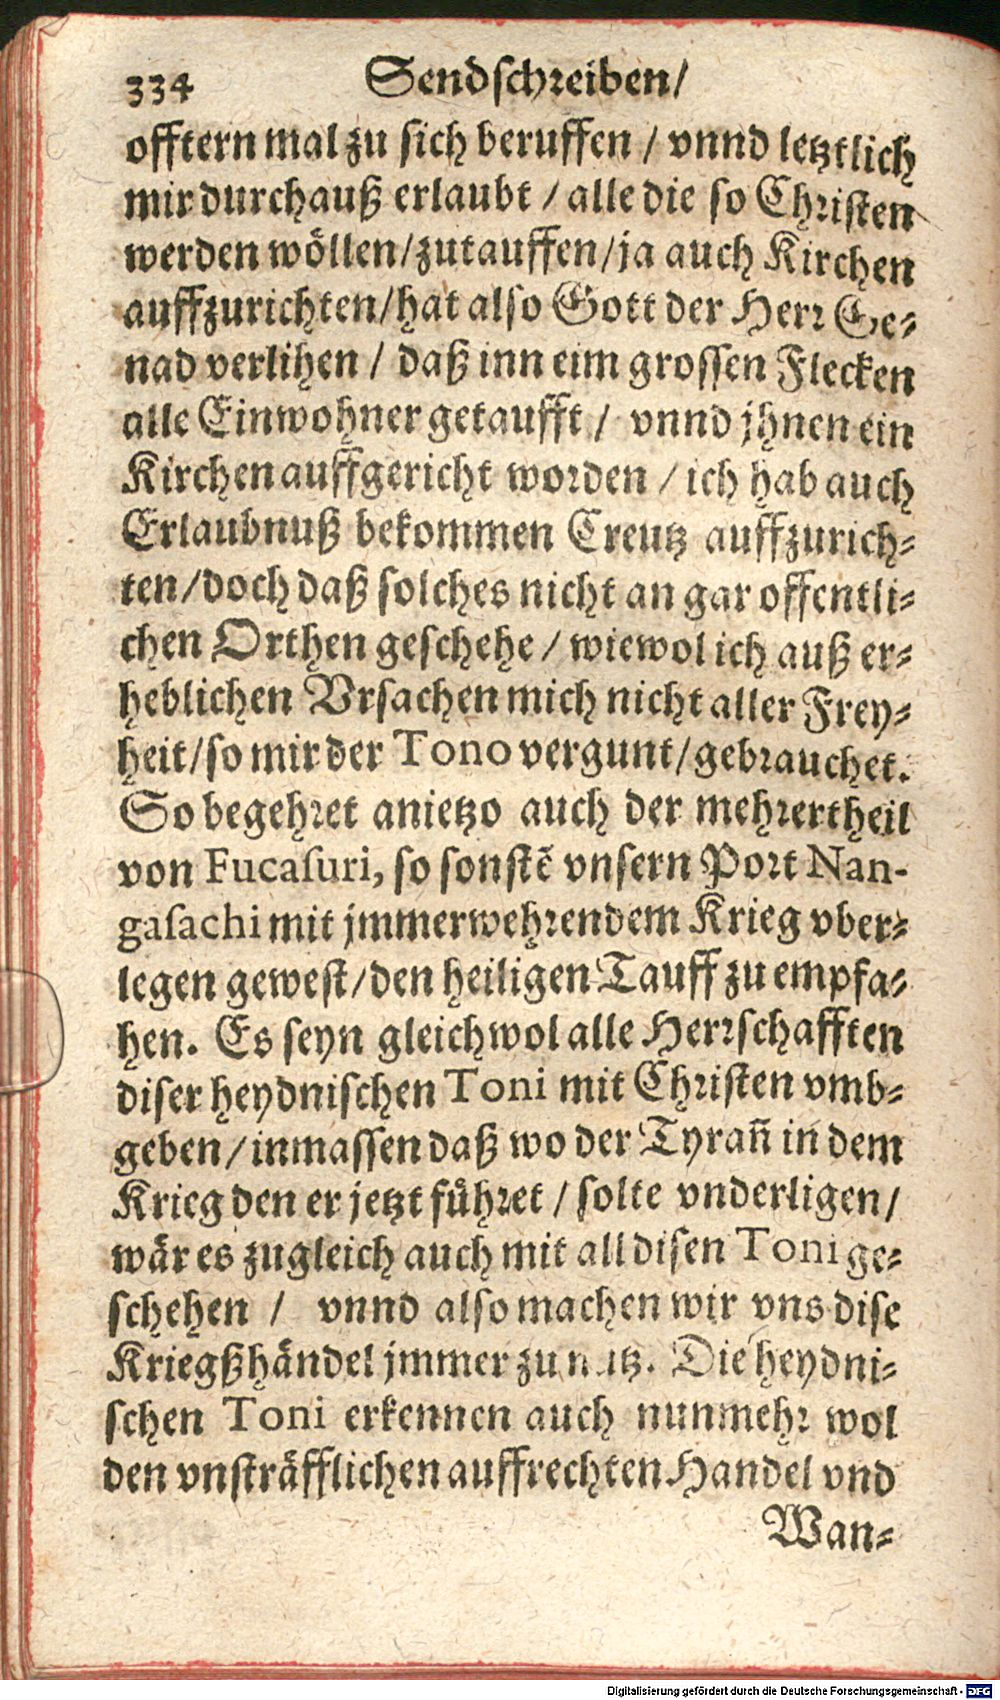 334 Sendschreiben/
offtern mal zu sich beruffen / vnnd letztlich
mir durchauß erlaubt / alle die so Christen
werden wöllen/zutauffen/ja auch Kirchen
auffzurichten/hat also Gott der Herr Ge-
nad verlihen / daß inn eim grossen Flecken
alle Einwohner getaufft / vnnd jhnen ein
Kirchen auffgericht worden / ich hab auch
Erlaubnuß bekommen Creutz auffzurich-
ten/doch daß solches nicht an gar offentli-
chen Orthen geschehe / wiewol ich auß er-
heblichen Vrsachen mich nicht aller Frey-
heit/so mir der Tono vergunt/gebrauchet.
So begehret anietzo auch der mehrertheil
von Fucasuri, so sonstē vnsern Port Nan-
gasachi mit jmmerwehrendem Krieg vber-
legen gewest/den heiligen Tauff zu empfa-
hen. Es seyn gleichwol alle Herrschafften
diser heydnischen Toni mit Christen vmb-
geben/inmassen daß wo der Tyrañ in dem
Krieg den er jetzt führet / solte vnderligen/
wär es zugleich auch mit all disen Toni ge-
schehen / vnnd also machen wir vns dise
Kriegßhändel jmmer zu nutz. Die heydni-
schen Toni erkennen auch nunmehr wol
den vnsträfflichen auffrechten Handel vnd
Wan-
Digitalisierung gefördert durch die Deutsche Forschungsgemeinschaft - DFG